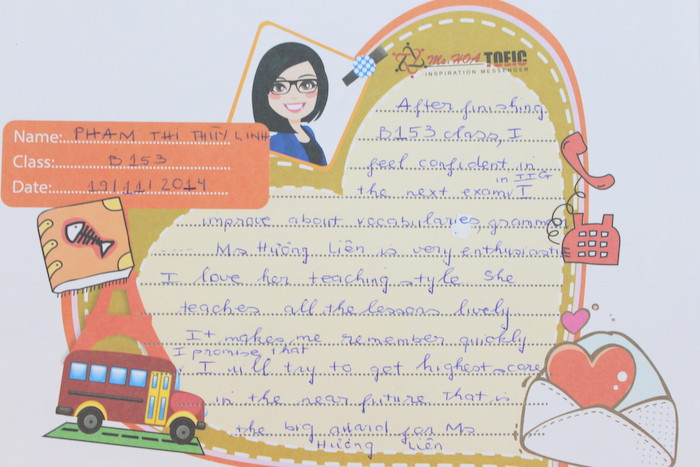 Ms. HOA TOEIC
INSPIRATION MESSENGER
Name: PHAM THI THÙY LINH
Class: B153
Date: 19/11/2014
After finishing
B153 class, I
feel confident in
the next exam in IIG I
improve about vocabularies, grammar
Ms Hương Liên is very enthusiastic
I love her teaching style She
teaches all the lessons lively
It makes me remember quickly
I promise that
I will try to get highest score
in the near future That is
the big award for Ms
Hương Liên